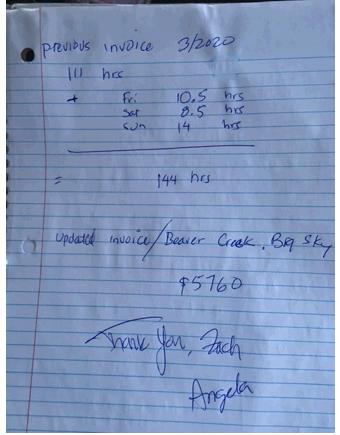 previous invoice 3/2020
111 hrs
+ Fri 10.5 hrs
Sat 8.5 hrs
Sun 14 hrs
= 144 hrs
Updated invoice/Beaver Creek, Big Sky
$5760
Thank You, Zach
Angela